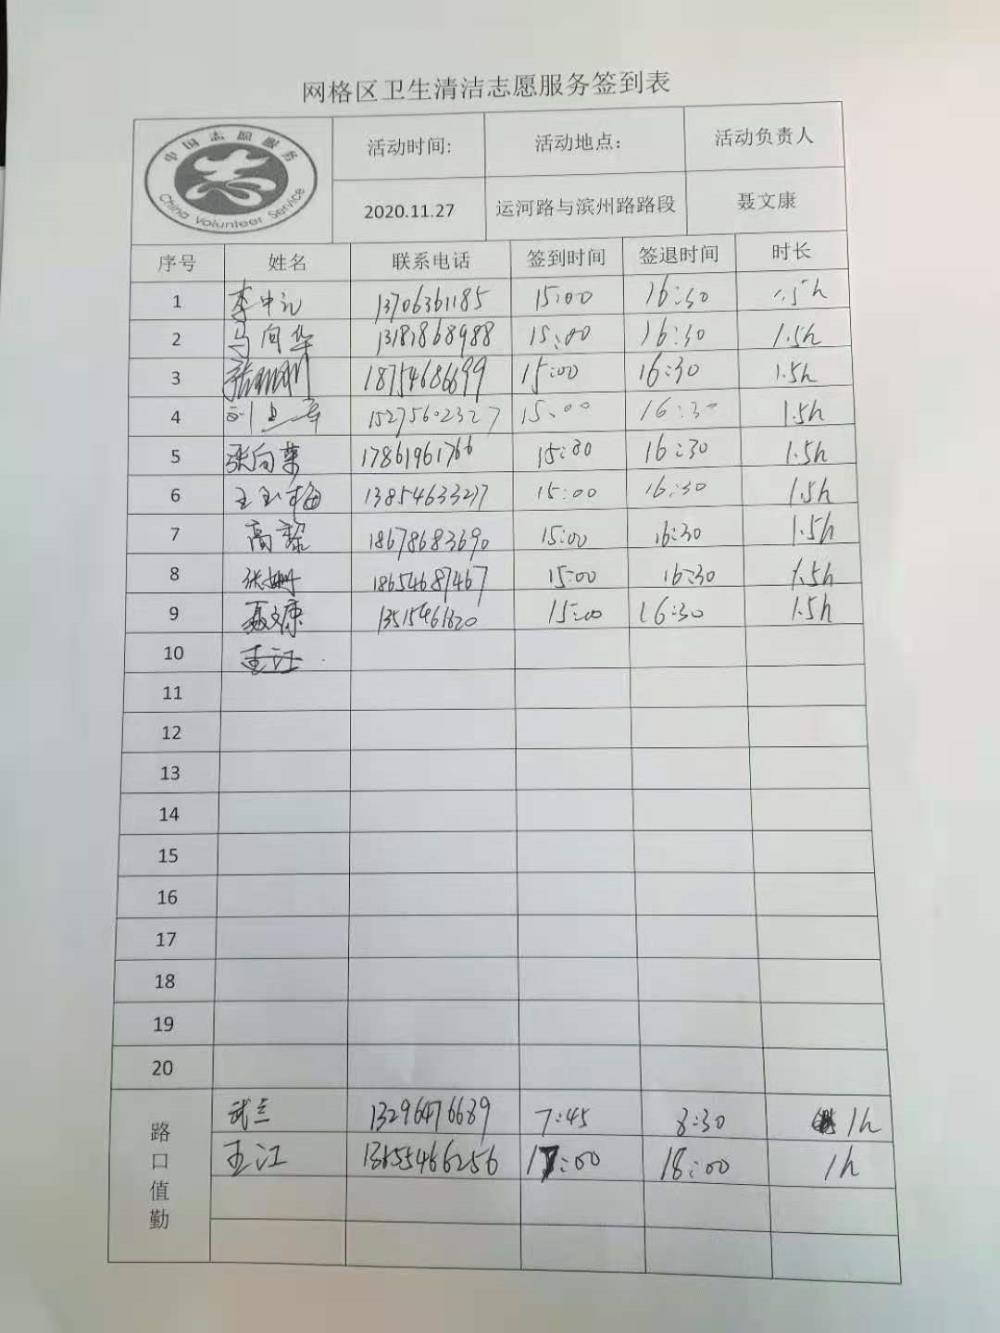 网格区卫生清洁志愿服务签到表
中国志愿服务
China Volunteer Service
活动时间: 活动地点: 活动负责人
2020.11.27 运河路与滨州路路段 聂文康
序号 姓名 联系电话 签到时间 签退时间 时长
1 李中礼 13706361185 15:00 16:30 1.5h
2 马向华 13181868988 15:00 16:30 1.5h
3 18754686699 15:00 16:30 1.5h
4 15275602327 15:00 16:30 1.5h
5 张向荣 17861961766 15:30 16:30 1.5h
6 王玉梅 13854633277 15:00 16:30 1.5h
7 高黎 18678683690 15:00 16:30 1.5h
8 张姗 18654687467 15:00 16:30 1.5h
9 聂文康 13515461820 15:00 16:30 1.5h
10 王江
11
12
13
14
15
16
17
18
19
20
路口值勤
武兰 13296476689 7:45 8:30 1h
王江 13855466256 17:00 18:00 1h